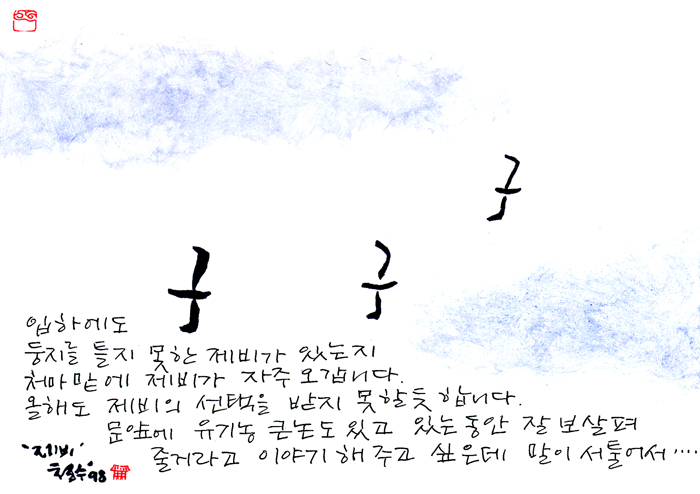 구
구
구
입하에도
둥지를 틀지 못한 제비가 있는지
처마밑에 제비가 자주 오갑니다.
올해도 제비의 선택을 받지 못할듯 합니다.
문앞에 유기농 큰논도 있고 있는동안 잘 보살펴
줄거라고 이야기 해 주고 싶은데 말이 서툴어서····
"제비"
철수 '98